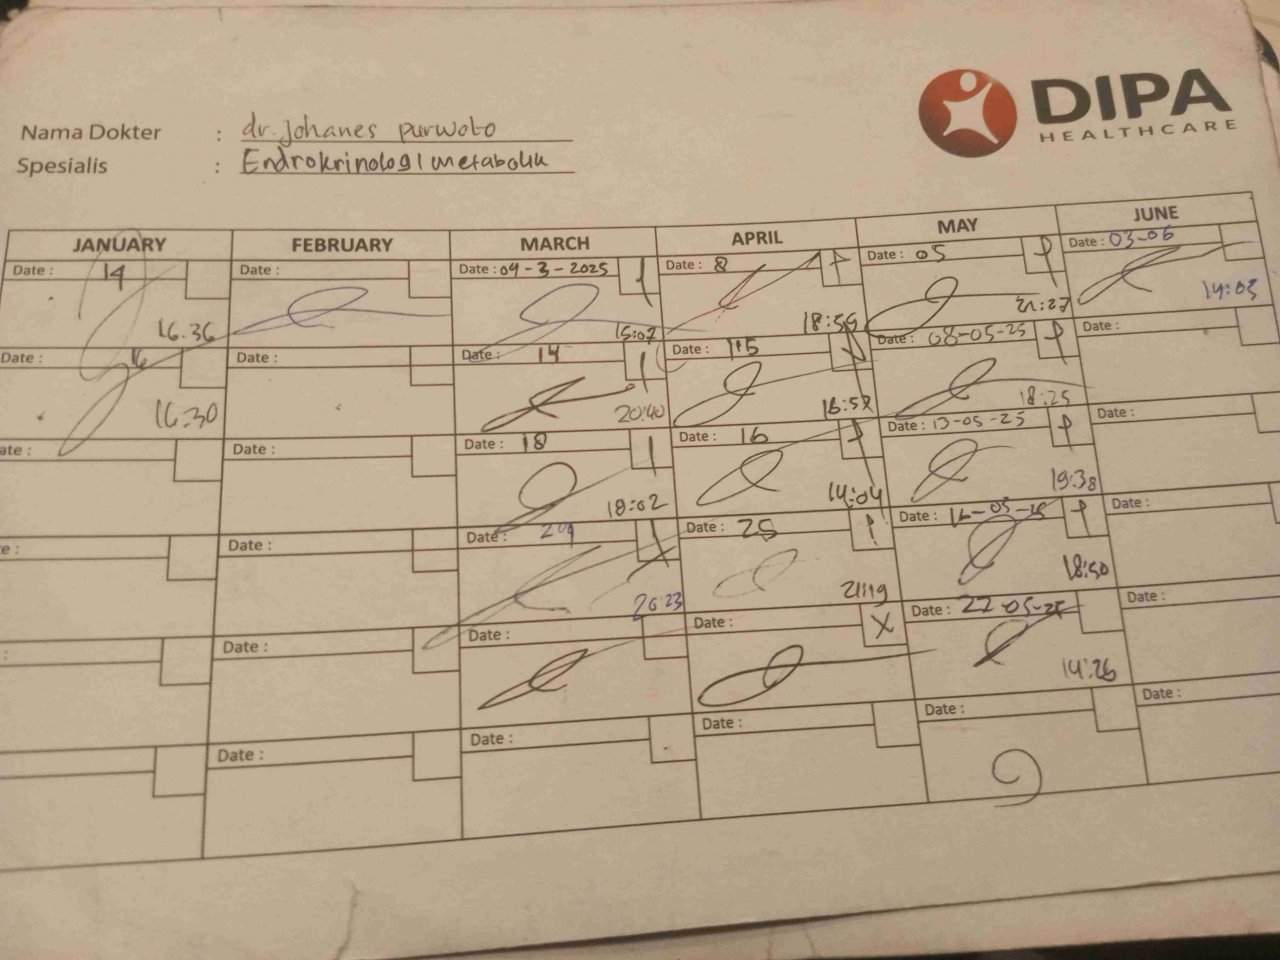 DIPA
HEALTHCARE
Nama Dokter : dr. Johanes purwoto
Spesialis : Endrokrinologi metabolik
JANUARY FEBRUARY MARCH APRIL MAY JUNE
Date : 14 Date : Date : 04-3-2025 Date : 8 Date : 05 Date : 03-06
16.36 15:07 18:55 21:27 14:03
Date : 16 Date : Date : 14 Date : 15 Date : 08-05-25 Date :
16:30 20:40 16:58 18:25
ate : Date : Date : 18 Date : 16 Date : 13-05-25 Date :
18:02 14:04 19:38
e : Date : Date : Date : 25 Date : 16-05-25 Date :
20:23 21:19 18:50
: Date : Date : Date : X Date : 22-05-25 Date :
14:26
Date : Date : Date : Date : Date :